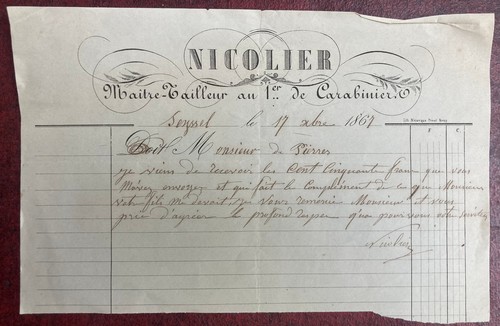 NICOLIER
Maître-Tailleur au 1.er de Carabiniers
le 17 xbre 1867
Doit Monsieur de
je viens de recevoir les Cent Cinquante francs que vous
M'avez envoyez et qui fait le Complément de ce que Monsieur
votre fils me devait, je vous remercie Monsieur et vous
prie d'agréer le profond respec que pour vous votre
Nicolier